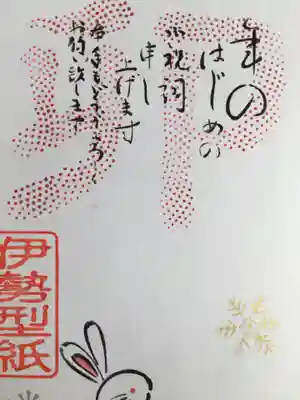 卯
年の
はじめの
御祝詞
申し
上げます
今年もどうぞよろしく
お願い致します
伊勢型紙